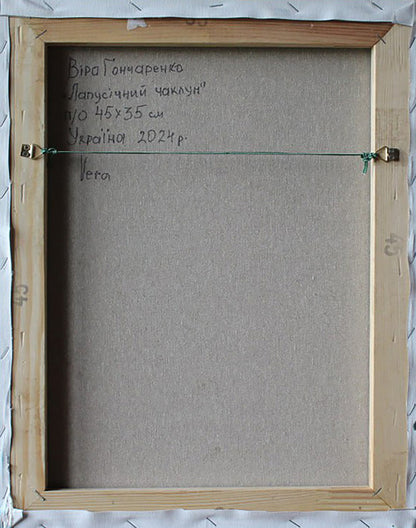 35
Віра Гончаренко
„Лапусічний чаклун"
п/о 45x35 см
Україна 2024 р.
Vera
45
45